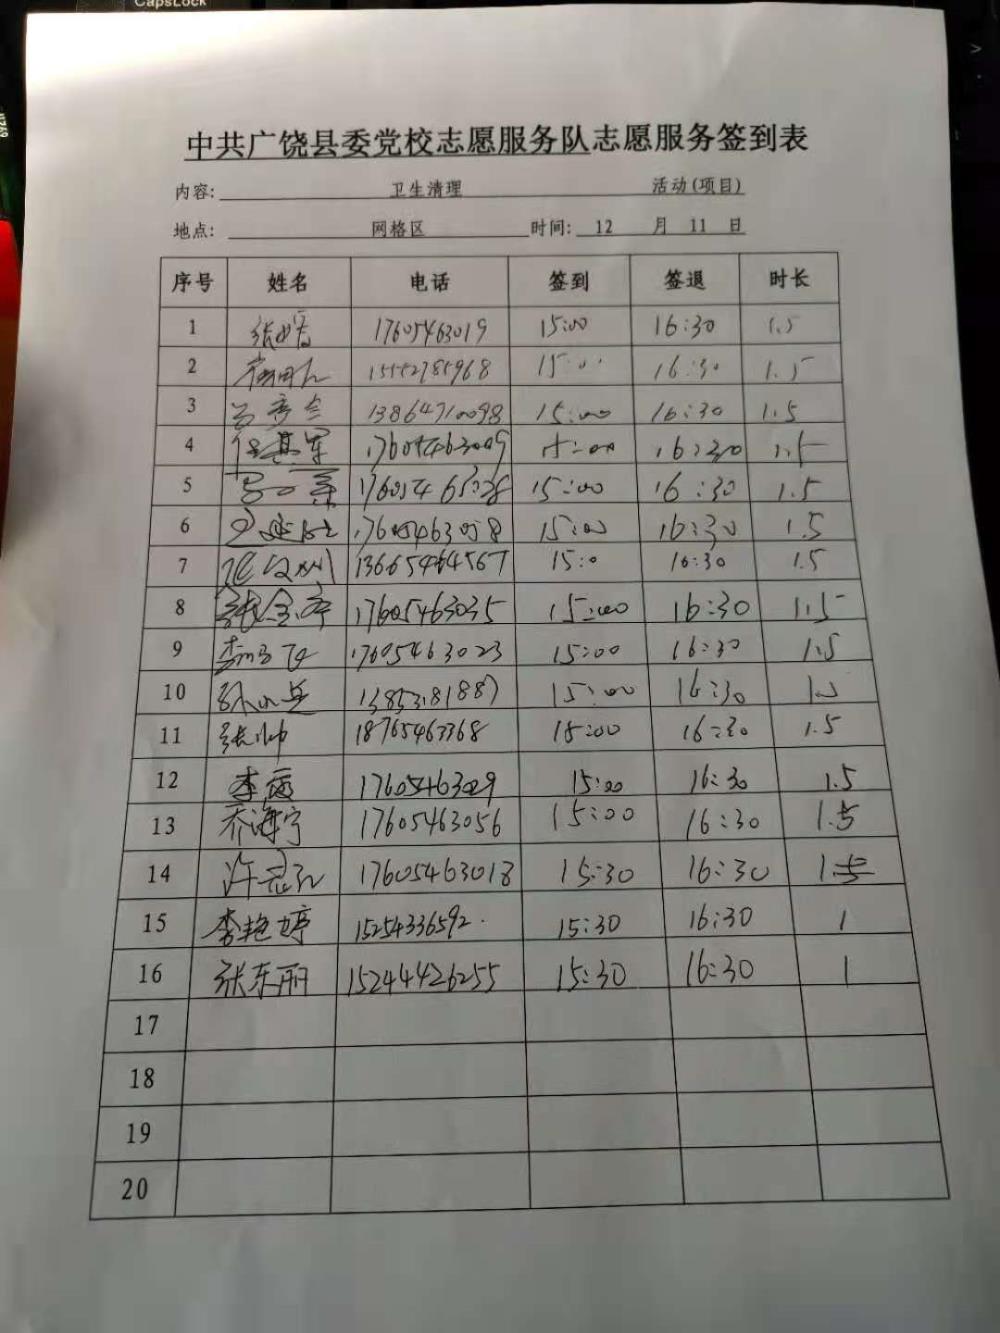 CapsLock
中共广饶县委党校志愿服务队志愿服务签到表
内容: 卫生清理 活动(项目)
地点: 网格区 时间: 12 月 11 日
序号 姓名 电话 签到 签退 时长
1 17605463019 15:00 16:30 1.5
2 15552785968 15:00 16:30 1.5
3 13864710098 15:00 16:30 1.5
4 17605463009 15:00 16:30 1.5
5 15:00 16:30 1.5
6 17605463058 15:00 16:30 1.5
7 13665464567 15:0 16:30 1.5
8 17605463035 15:00 16:30 1.5
9 17605463023 15:00 16:30 1.5
10 孙小兵 15:00 16:30 1.5
11 张帅 18765463368 15:00 16:30 1.5
12 17605463029 15:00 16:30 1.5
13 乔海宁 17605463056 15:00 16:30 1.5
14 17605463018 15:30 16:30 1.5
15 李艳婷 15254336592. 15:30 16:30 1
16 张东丽 15244426255 15:30 16:30 1
17
18
19
20